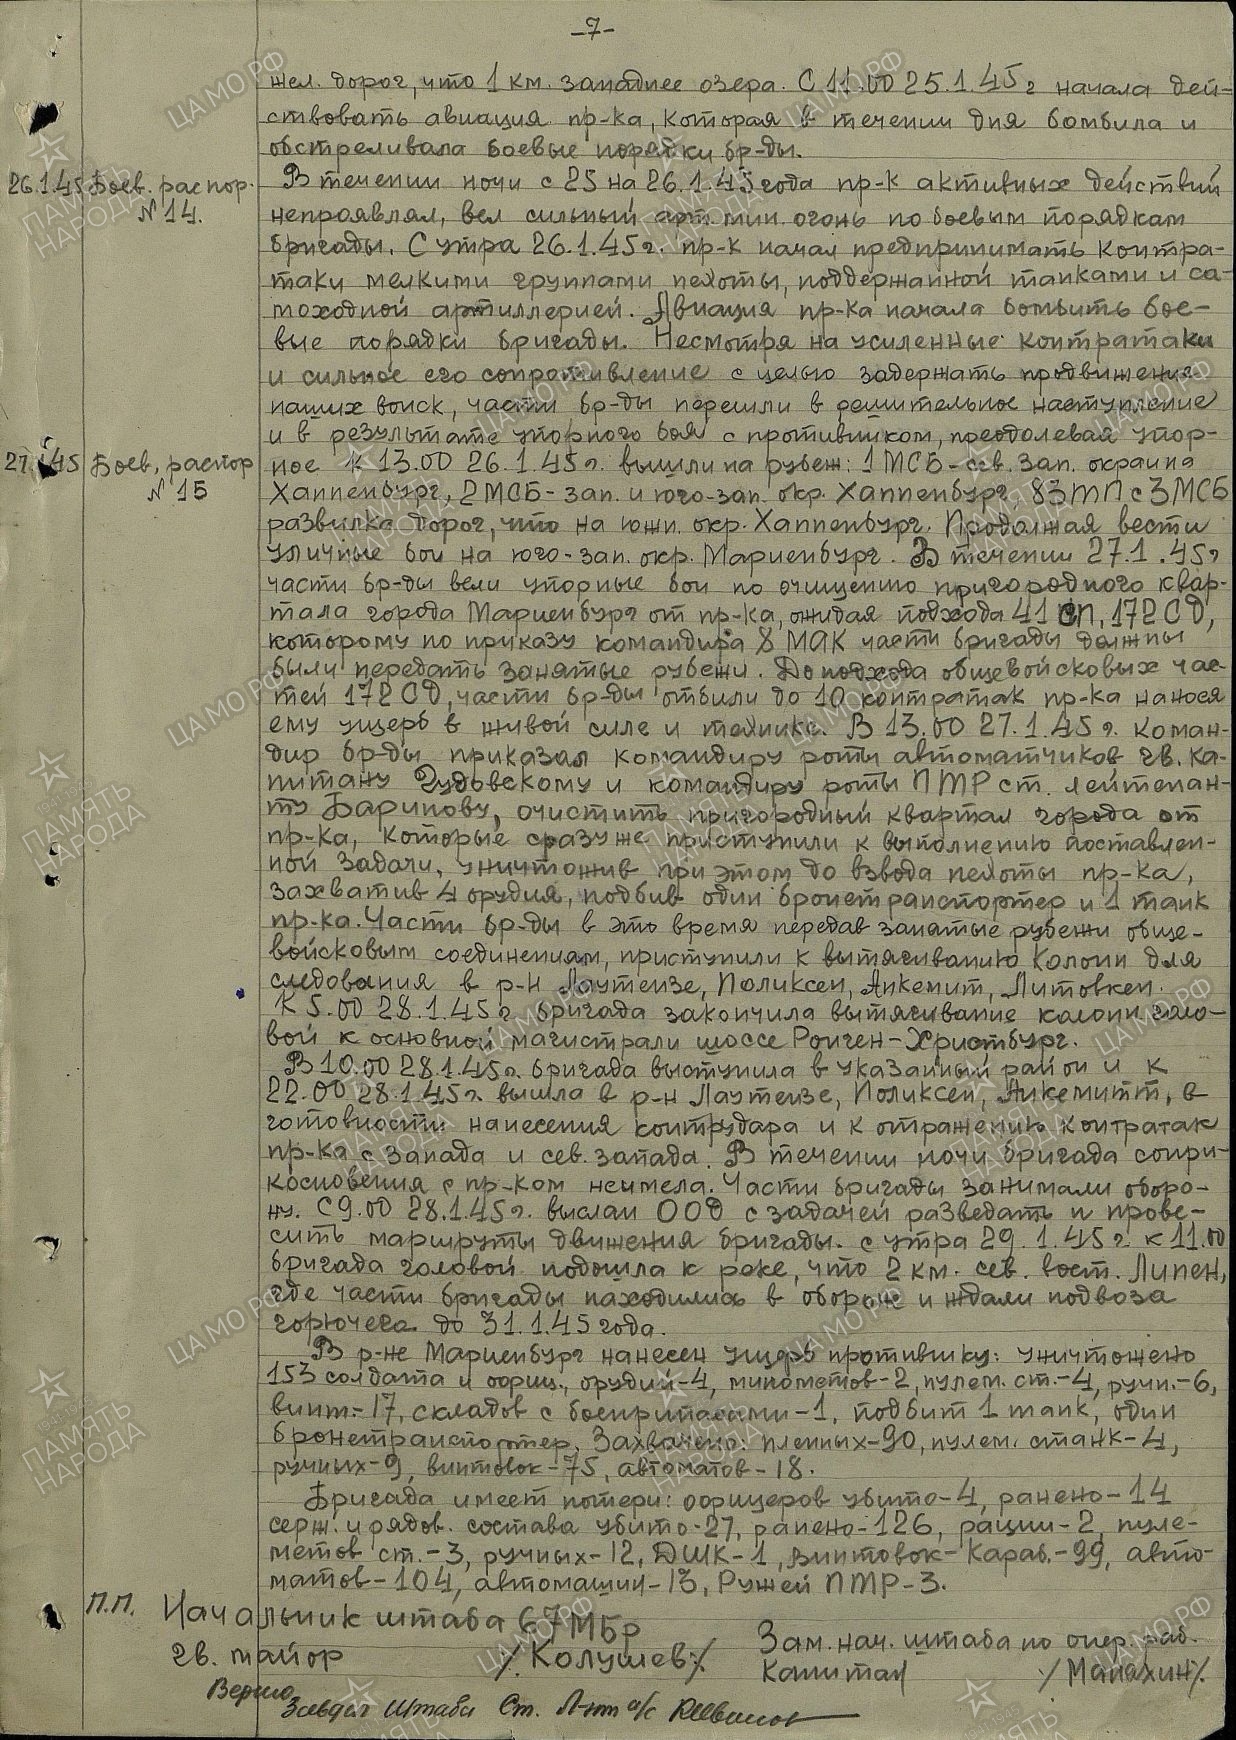 -7-
жел. дорог, что 1 км. западнее озера. С 11.00 25.1.45 г начала дей-
ствовать авиация пр-ка, которая в течении дня бомбила и
обстреливала боевые порядки бр-ды.
26.1.45 Боев. распор. В течении ночи с 25 на 26.1.45 года пр-к активных действий
№ 14. непроявлял, вел сильный арт. мин. огонь по боевым порядкам
бригады. С утра 26.1.45 г. пр-к начал предпринимать контра-
таки мелкими группами пехоты, поддержанной танками и са-
моходной артиллерией. Авиация пр-ка начала бомбить бое-
вые порядки бригады. Несмотря на усиленные контратаки
и сильное его сопротивление с целью задержать продвижения
наших войск, части бр-ды перешли в решительное наступление
и в результате упорного боя с противником, преодолевая упор-
27.1.45 Боев. распор ное к 13.00 26.1.45 г. вышли на рубеж: 1 МСБ - сев. зап. окраина
№ 15 Хаппенбург, 2 МСБ - зап. и юго-зап. окр. Хаппенбург, 83 тп с 3 МСБ
развилка дорог, что на южн. окр. Хаппенбург. Продолжая вести
уличные бои на юго-зап. окр. Мариенбург. В течении 27.1.45 г
части бр-ды вели упорные бои по очищению пригородного квар-
тала города Мариенбург от пр-ка, ожидая подхода 41 СП, 172 СД,
которому по приказу командира 8 МАК части бригады должны
были передать занятые рубежи. До подхода общевойсковых час-
тей 172 СД, части бр-ды отбили до 10 контратак пр-ка нанося
ему ущерб в живой силе и технике. В 13.00 27.1.45 г. коман-
дир бр-ды приказал командиру роты автоматчиков гв. ка-
питану Гудовскому и командиру роты ПТР ст. лейтенан-
ту Баринову, очистить пригородный квартал города от
пр-ка, которые сразу же приступили к выполнению поставлен-
ной задачи, уничтожив при этом до взвода пехоты пр-ка,
захватив 4 орудия, подбив один бронетранспортер и 1 танк
пр-ка. Части бр-ды в это время передав занятые рубежи обще-
войсковым соединениям, приступили к вытягиванию колонн для
следования в р-н Лаутензе, Поликсен, Анкемит, Литовкен.
К 5.00 28.1.45 г. бригада закончила вытягивание колонн голо-
вой к основной магистрали шоссе Ронген-Христбург.
В 10.00 28.1.45 г. бригада выступила в указанный район и к
22.00 28.1.45 г. вышла в р-н Лаутензе, Поликсен, Анкемитт, в
готовности нанесения контрудара и к отражению контратак
пр-ка с запада и сев. запада. В течении ночи бригада сопри-
косновения с пр-ком неимела. Части бригады занимали оборо-
ну. С 9.00 28.1.45 г. выслан ООД с задачей разведать и прове-
сить маршруты движения бригады. с утра 29.1.45 г. к 11.00
бригада головой подошла к реке, что 2 км. сев. вост. Липен,
где части бригады находились в обороне и ждали подвоза
горючего до 31.1.45 года.
В р-не Мариенбург нанесен ущерб противнику: уничтожено
153 солдата и офиц., орудий-4, минометов-2, пулем. ст.-4, ручн.-6,
винт.-17, складов с боеприпасами-1, подбит 1 танк, один
бронетранспортер. Захвачено: пленных-90, пулем. станк-4,
ручных-9, винтовок-75, автоматов-18.
Бригада имеет потери: офицеров убито-4, ранено-14
серж. и рядов. состава убито-27, ранено-126, рации-2, пуле-
метов ст.-3, ручных-12, ДШК-1, винтовок-караб.-99, авто-
матов-104, автомашин-13, Ружей ПТР-3.
П.П. Начальник штаба 67 МБр
гв. майор / Колушев / Зам. нач. штаба по опер. раб.
Капитан / Малахин /
Верно
Завдел Штаба Ст. Л-нт а/с